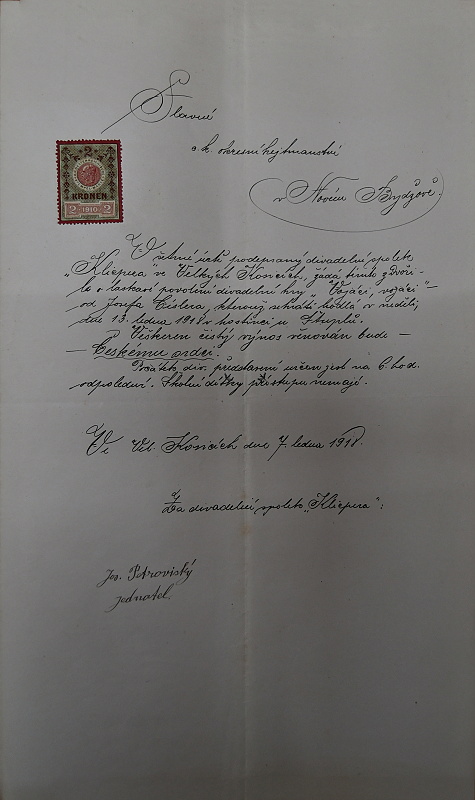 Slavné
c. k. okresní hejtmanství
v Novém Bydžově.
2
KRONEN
2 1910 2
V úctě podepsaný divadelní spolek
"Klicpera" ve Velkých Kosicích, žádá tímto zdvoři-
le o laskavé povolení divadelní hry "Vojáci, vojáci" -
od Josefa Cislera, kterouž sehráti hodlá v neděli,
dne 13. ledna 1918 v hostinci u Štuplů.
Veškeren čistý výnos věnován bude -
- Českému srdci.
Počátek div. představení určen jest na 6. hod.
odpolední. Školní dítky přístupu nemají.
Ve Vel. Kosicích dne 7. ledna 1918.
Za divadelní spolek "Klicpera":
Jos. Petrovický
jednatel.